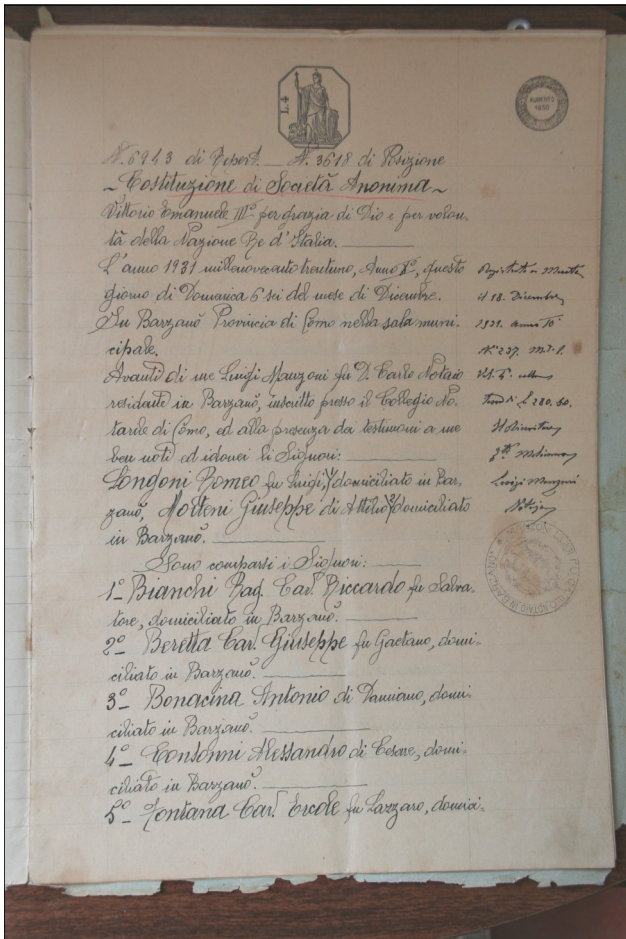 L. 4
AUMENTO
1930
N. 6943 di Repert. — N. 3618 di Posizione
~ Costituzione di Società Anonima ~
Vittorio Emanuele III° per grazia di Dio e per volon-
tà della Nazione Re d'Italia.
L'anno 1931 millenovecentotrentuno, Anno X°, questo
giorno di Domenica 6 sei del mese di Dicembre.
In Barzanò Provincia di Como nella sala muni-
cipale.
Avanti di me Luigi Manzoni fu D. Carlo Notaio
residente in Barzanò, inscritto presso il Collegio No-
tarile di Como, ed alla presenza dei testimoni a me
ben noti ed idonei li Signori:
Longoni Romeo fu Luigi, domiciliato in Bar-
zanò, Molteni Giuseppe di Attilio, domiciliato
in Barzanò.
Sono comparsi i Signori:
1° Bianchi Rag. Cav. Riccardo fu Salva-
tore, domiciliato in Barzanò.
2° Beretta Cav. Giuseppe fu Gaetano, domi-
ciliato in Barzanò.
3° Bonacina Antonio di Damiano, domi-
ciliato in Barzanò.
4° Consonni Alessandro di Cesare, domi-
ciliato in Barzanò.
5° Fontana Cav. Ercole fu Lazzaro, domici-
Registrato a
il 18 Dicembre
1931 anno 10°
N° 237
L. 280.50
Luigi Manzoni
Notajo
NOTAIO IN BARZANO'